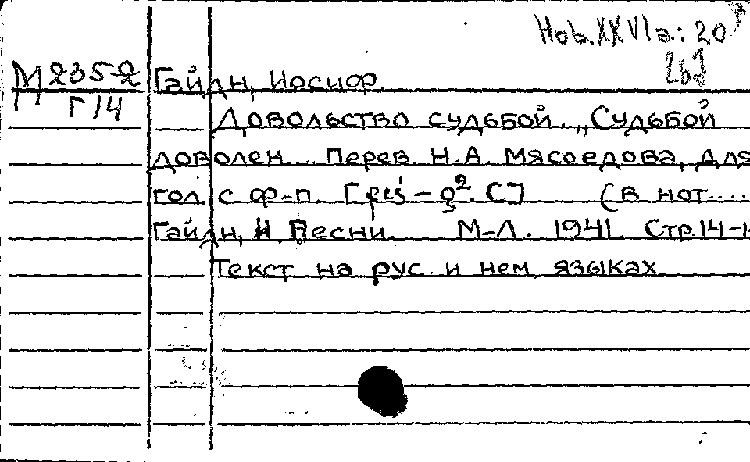 Hob. XXVIa: 20
М 235-2 Гайдн, Иосиф.
Г 14
Довольство судьбой. „Судьбой
доволен... Перев. Н.А. Мясоедова, для
гол. с ф-п. [ – g². C] (в нот....
Гайдн, И. Песни. М-Л. 1941. Стр. 14-1
Текст на рус. и нем. языках